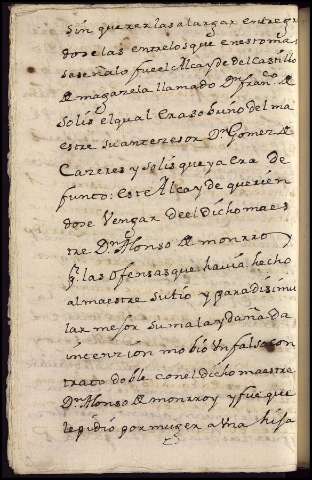 sin quererlas alargar entregan
dose las entre los que en esto mas
se señalo fue el Alcayde del Castillo
de maganela llamado Dn franco de
Solis el qual era sobrino del ma
estre su antecesor Dn Gomez de
Cazeres y solis que ya era de
funto: este Alcayde querien
dose Vengar de el dicho maes
tre Dn Alonso de monrroy
las ofensas que havia hecho
al maestre su tio y para disimu
lar mejor su mala y dañada
intenzion mobio Un falso con
trato doble con el dicho maestre
Dn Alonso de monrroy y fue que
le pidio por muger a Una hija